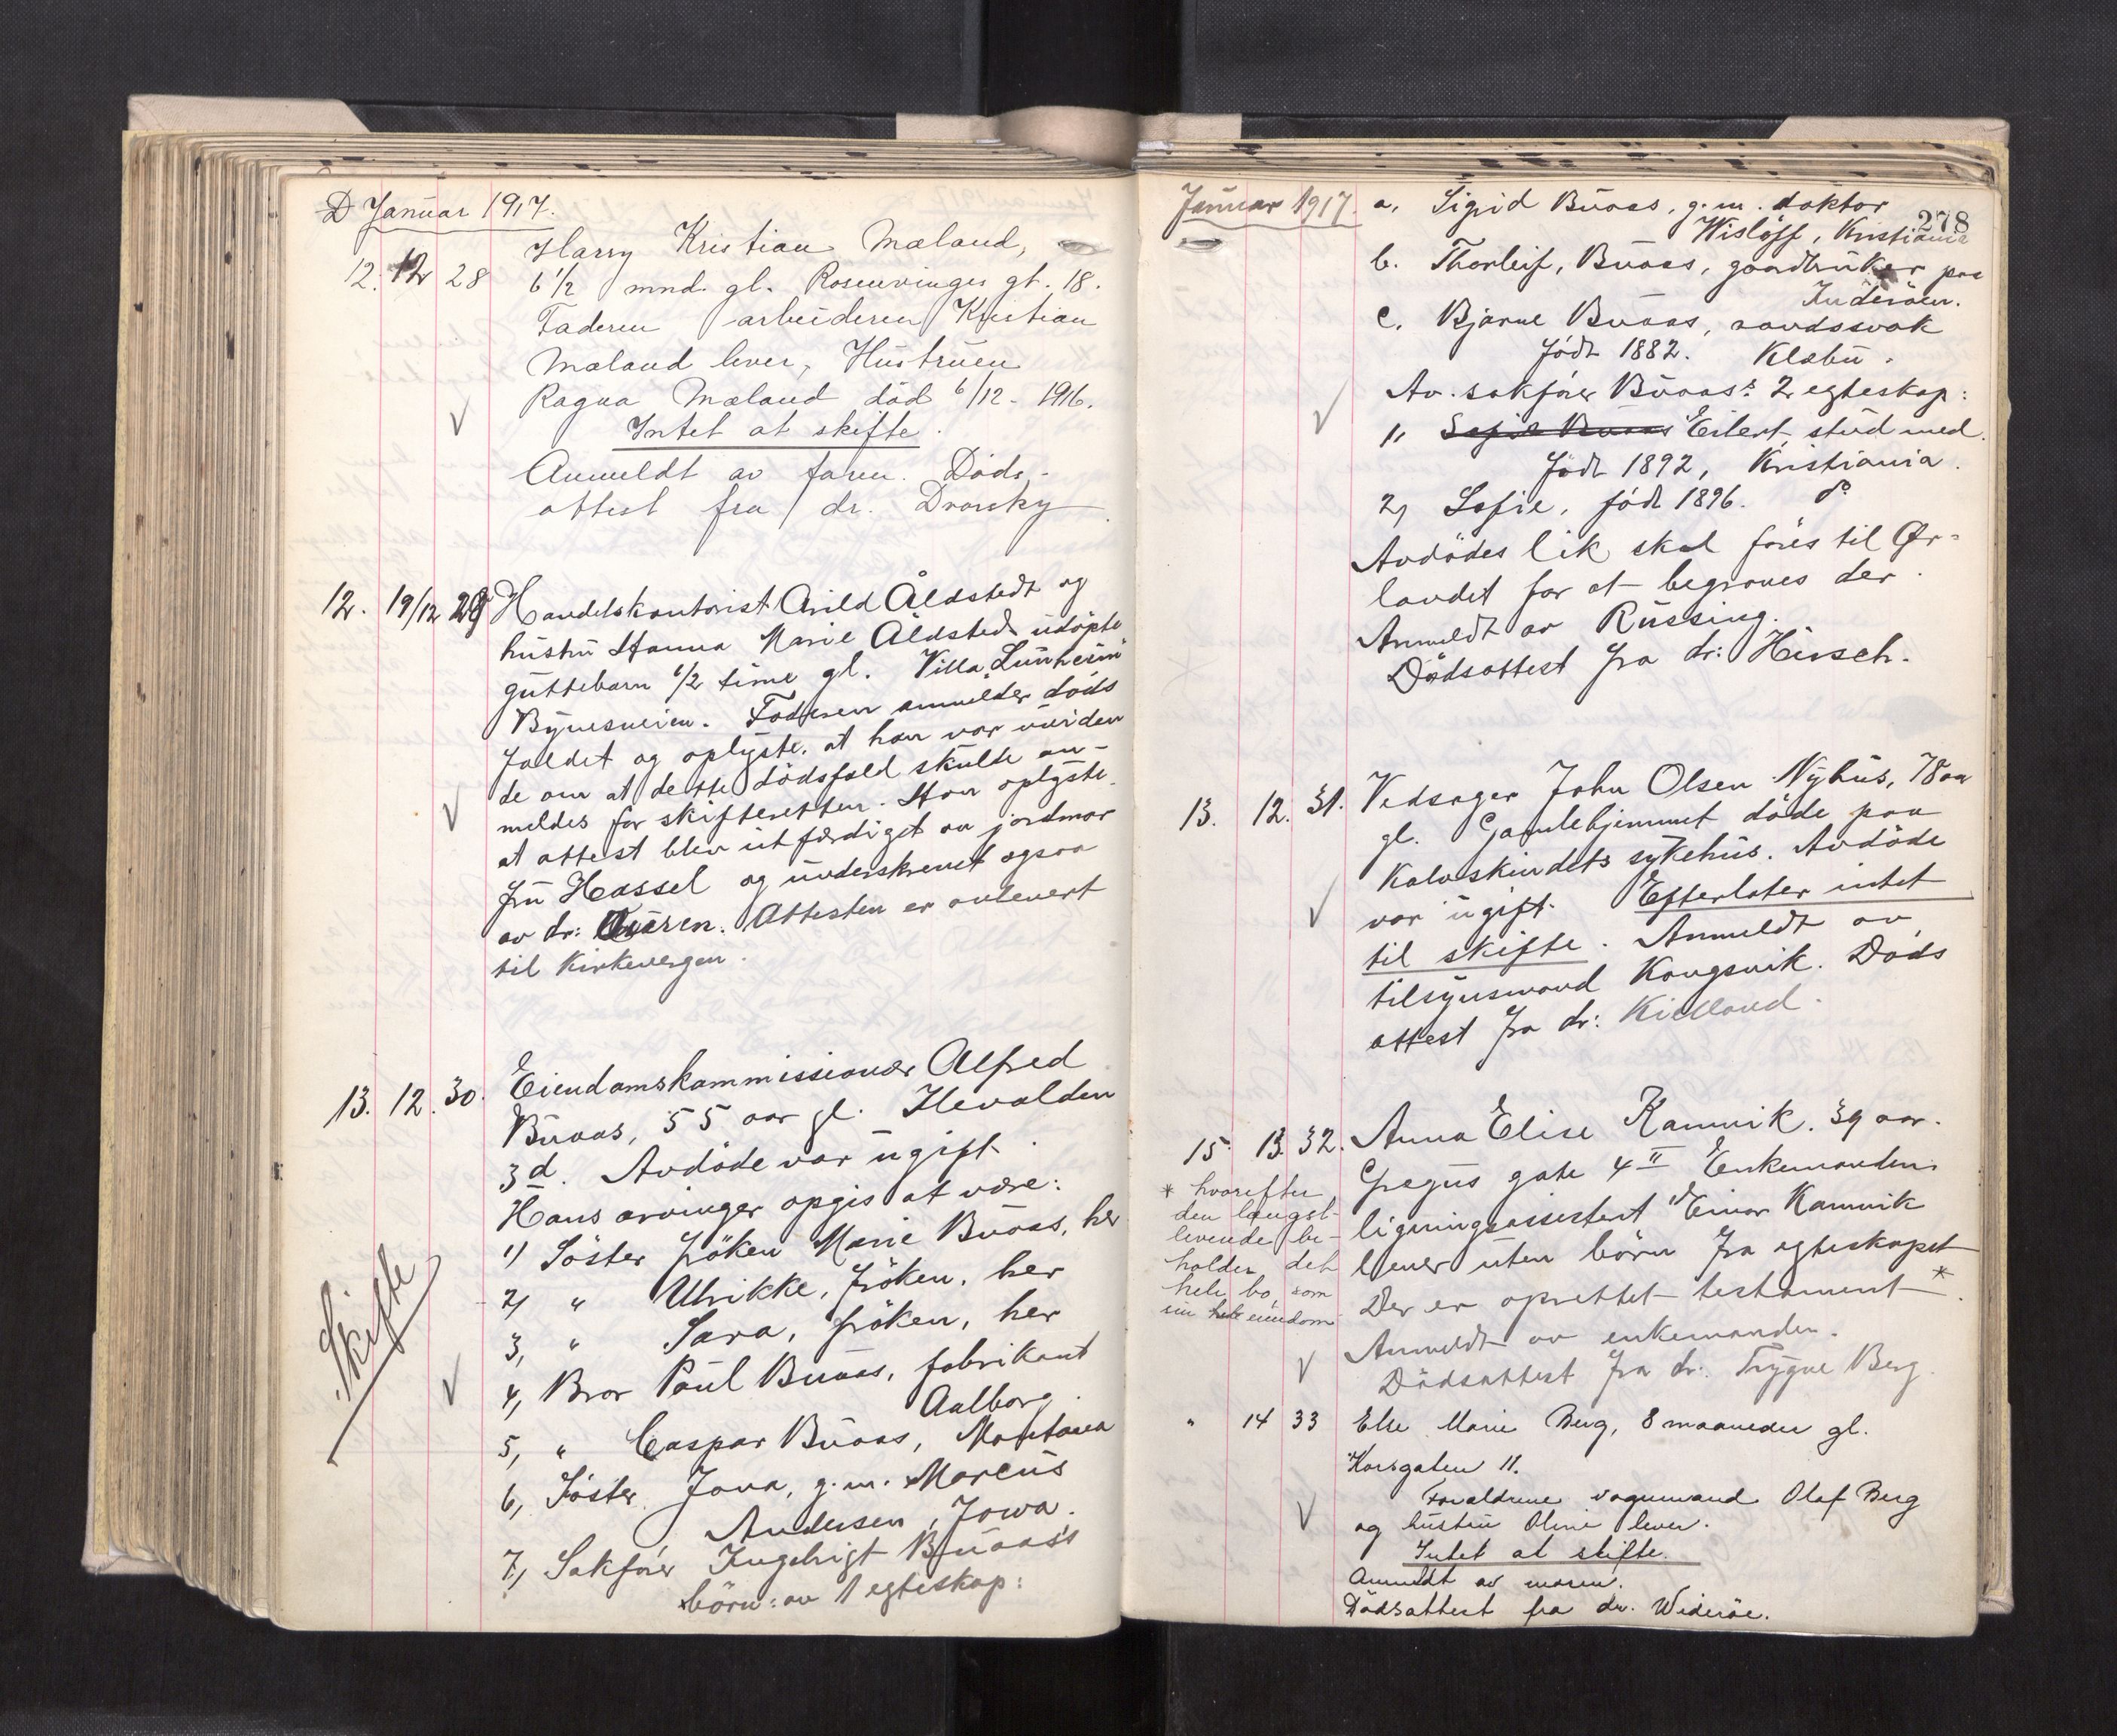 D Januar 1917.
12. 12 28 Harry Kristian Mæland,
6 1/2 mnd. gl. Rosenvinges gt. 18.
Faderen arbeideren Kristian
Mæland lever, Hustruen
Ragna Mæland död 6/12 - 1916.
Intet at skifte.
Anmeldt av faren. Döds-
attest fra dr.
12. 19/12 29 Handelskontorist Arild Åldstedt og
hustru Hanna Marie Åldstedt udöpte
guttebarn 1/2 time gl. Villa
Bynesveien. Faderen anmelder döds
faldet og oplyste, at han var uviden
de om at dette dödsfald skulde an-
meldes for skifteretten. Han oplyste
at attest blev utfærdiget av jordmor
fru Hassel og underskrevet ogsaa
av dr: Attesten er avlevert
til Kirkevergen.
13. 12. 30. Eiendomskommissionær Alfred
Buaas, 55 aar gl. Ilevolden
3d. Avdöde var ugift.
Hans arvinger opgis at være:
1) Söster fröken Marie Buaas, her
2) " Ulrikke, fröken, her
3, " Sara, fröken, her
Skifte
4, Bror Paul Buaas, fabrikant
Aalborg.
5, " Caspar Buaas, Montana
6, Söster Jova, g.m. Marcus
Andersen, Jowa.
7, Sakförer Ingebrigt Buaas's
börn: av 1 egteskap:
Januar 1917. a. Sigrid Buaas, g.m. doktor
278
Wislöff, Kristiania
b. Thorleif, Buaas, gaardbruker paa
Inderöen.
c. Bjarne Buaas, aandssvak
född 1882. Klæbu.
Av. sakförer Buaas's 2 egteskap:
1, Sofie Buaas Eilert, stud med.
född 1892, Kristiania.
2, Sofie, född 1896. do
Avdödes lik skal föres til Ør-
landet for at begraves der.
Anmeldt av Russing.
Dödsattest fra dr: Hirsch.
13. 12. 31. Vedsager John Olsen Nyhus, 78 aa
gl. Gamlehjemmet döde paa
Kalvskindets sykehus. Avdöde
var ugift. Efterlater intet
til skifte. Anmeldt av
tilsynsmand Kongsvik. Döds
attest fra dr: Kielland.
15. 13. 32. Anna Elise Kamvik. 39 aar.
Gregus gate 4 II Enkemanden
ligningsassistent Einar Kamvik
lever uten börn fra egteskapet
Der er oprettet testament *.
* hvorefter
den længst-
levende be-
holder det
hele bo som
sin hele eiendom
Anmeldt av enkemanden.
Dödsattest fra dr: Trygve Berg.
" 14 33 Else Marie Berg, 8 maaneder gl.
Korsgaten 11.
Forældrene vognmand Olaf Berg
og hustru Oline lever.
Intet at skifte.
Anmeldt av moren.
Dödsattest fra dr. Wideröe.